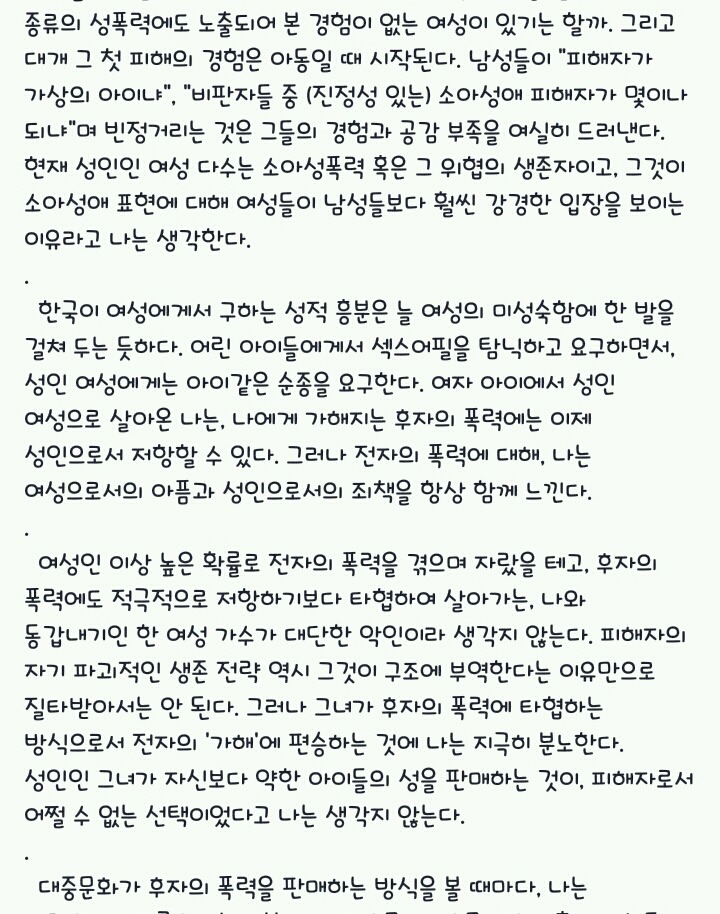 종류의 성폭력에도 노출되어 본 경험이 없는 여성이 있기는 할까. 그리고
대개 그 첫 피해의 경험은 아동일 때 시작된다. 남성들이 "피해자가
가상의 아이냐", "비판자들 중 (진정성 있는) 소아성애 피해자가 몇이나
되냐"며 빈정거리는 것은 그들의 경험과 공감 부족을 여실히 드러낸다.
현재 성인인 여성 다수는 소아성폭력 혹은 그 위협의 생존자이고, 그것이
소아성애 표현에 대해 여성들이 남성들보다 훨씬 강경한 입장을 보이는
이유라고 나는 생각한다.
.
한국이 여성에게서 구하는 성적 흥분은 늘 여성의 미성숙함에 한 발을
걸쳐 두는 듯하다. 어린 아이들에게서 섹스어필을 탐닉하고 요구하면서,
성인 여성에게는 아이같은 순종을 요구한다. 여자 아이에서 성인
여성으로 살아온 나는, 나에게 가해지는 후자의 폭력에는 이제
성인으로서 저항할 수 있다. 그러나 전자의 폭력에 대해, 나는
여성으로서의 아픔과 성인으로서의 죄책을 항상 함께 느낀다.
.
여성인 이상 높은 확률로 전자의 폭력을 겪으며 자랐을 테고, 후자의
폭력에도 적극적으로 저항하기보다 타협하여 살아가는, 나와
동갑내기인 한 여성 가수가 대단한 악인이라 생각지 않는다. 피해자의
자기 파괴적인 생존 전략 역시 그것이 구조에 부역한다는 이유만으로
질타받아서는 안 된다. 그러나 그녀가 후자의 폭력에 타협하는
방식으로서 전자의 '가해'에 편승하는 것에 나는 지극히 분노한다.
성인인 그녀가 자신보다 약한 아이들의 성을 판매하는 것이, 피해자로서
어쩔 수 없는 선택이었다고 나는 생각지 않는다.
.
대중문화가 후자의 폭력을 판매하는 방식을 볼 때마다, 나는